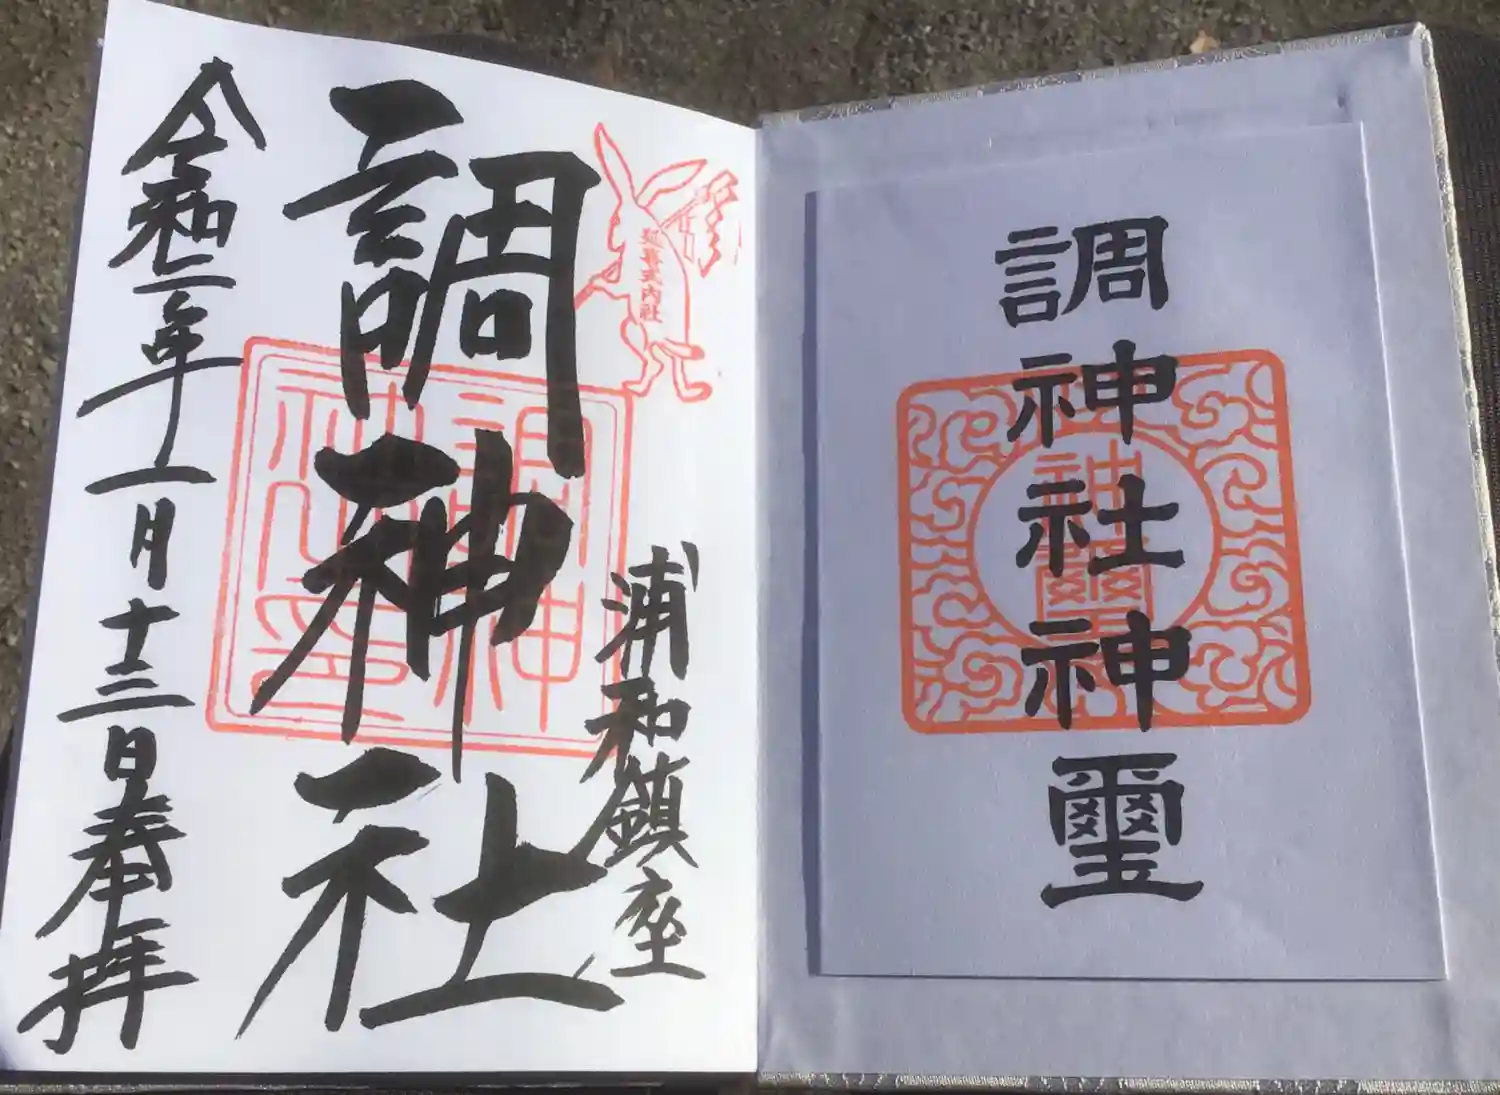 調神社神璽
神璽
延喜式内社
浦和鎮座
調神社
令和二年一月十三日奉拝